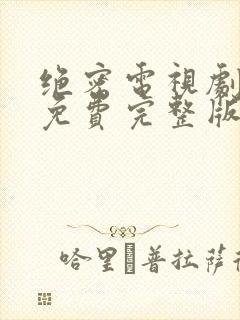 绝密電視劇
免費完整版
哈里·普拉薩